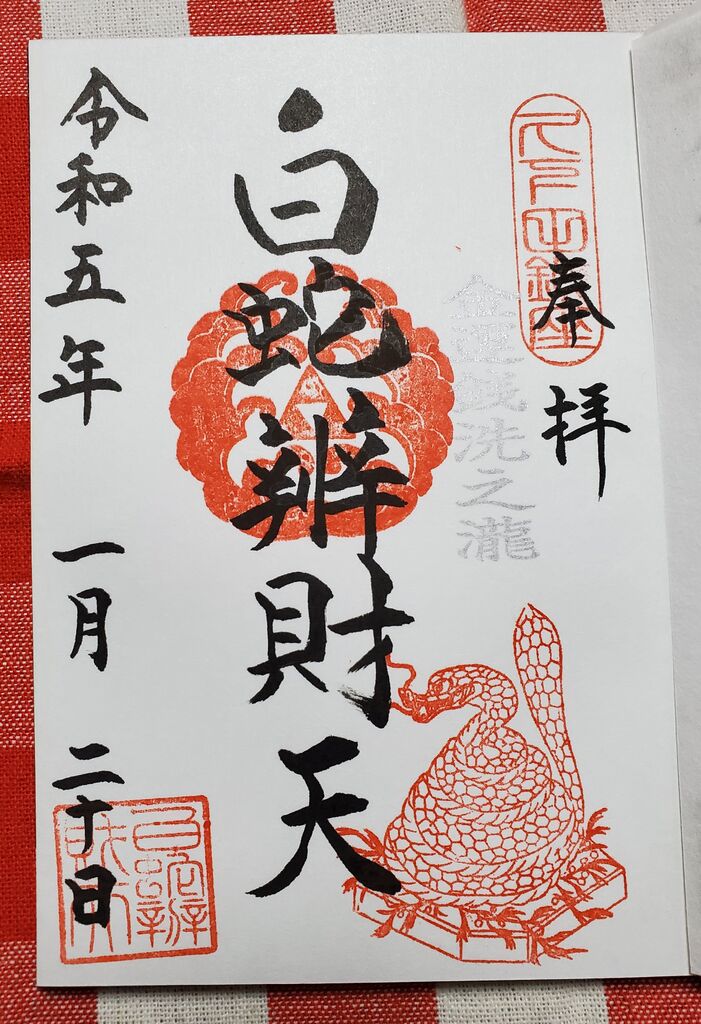 奉拝
金運銭洗之瀧
白蛇辨財天
令和五年 一月 二十日
白蛇辨財天